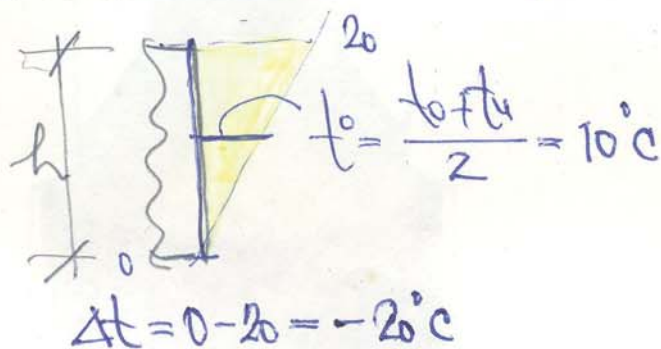 20
h
t° = (to + tu)/2 = 10°C
0
Δt = 0 - 20 = -20°C